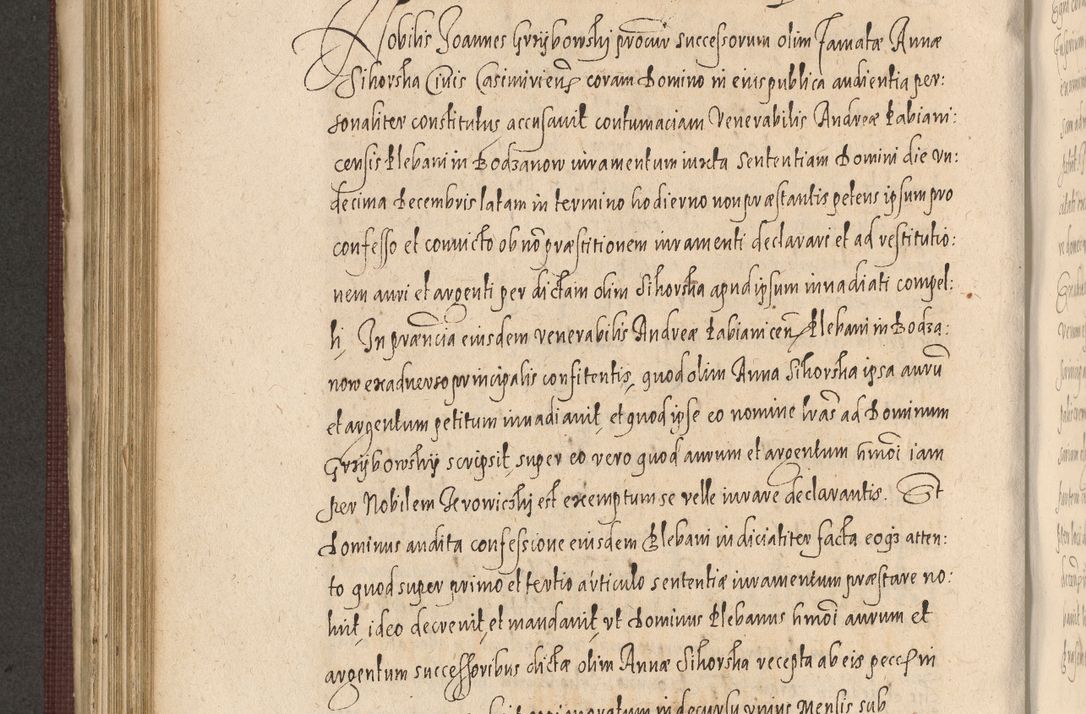 Nobilis Joannes Grzybowskj procur successorum olim Famatæ Annæ
Sikorska Civis Casimirien coram Domino in eius publica audientia per:
sonaliter constitutus accusavit contumaciam Venerabilis Andreæ Pabiani:
censis Plebani in Bodzanow iuramentum iuxta Sententiam Domini die un:
decima Decembris latam in termino hodierno non præstantis petens ipsum pro
confesso et convicto ob nõ præstitionem iuramenti declarari et ad restitutio:
nem auri et argenti per dictam olim Sikorska apud ipsum invadiati compel:
li, In præncia eiusdem venerabilis Andreæ Pabianicen Plebani in Bodza:
now ex adverso principalis confitentis, quod olim Anna Sikorska ipsa aurũ
et argentum petitum invadiavit, et quod ipse eo nomine lras ad Dominum
Grzybowskij scripsit, super eo vero quod aurum et argentum hmõi iam
per Nobilem Xrowickij est exemptum se velle iurare declarantis. Et
Dominus audita confessione eiusdem Plebani iudicialiter facta eoqз atten:
to quod super primo et tertio articulo sententiæ iuramentum præstare no:
luit, ideo decrevit, et mandavit, ut Dominus Plebanus hmõi aurum et
argentum successoribus dictæ olim Annæ Sikorska recepta ab eis
in decursu unius Mensis sub